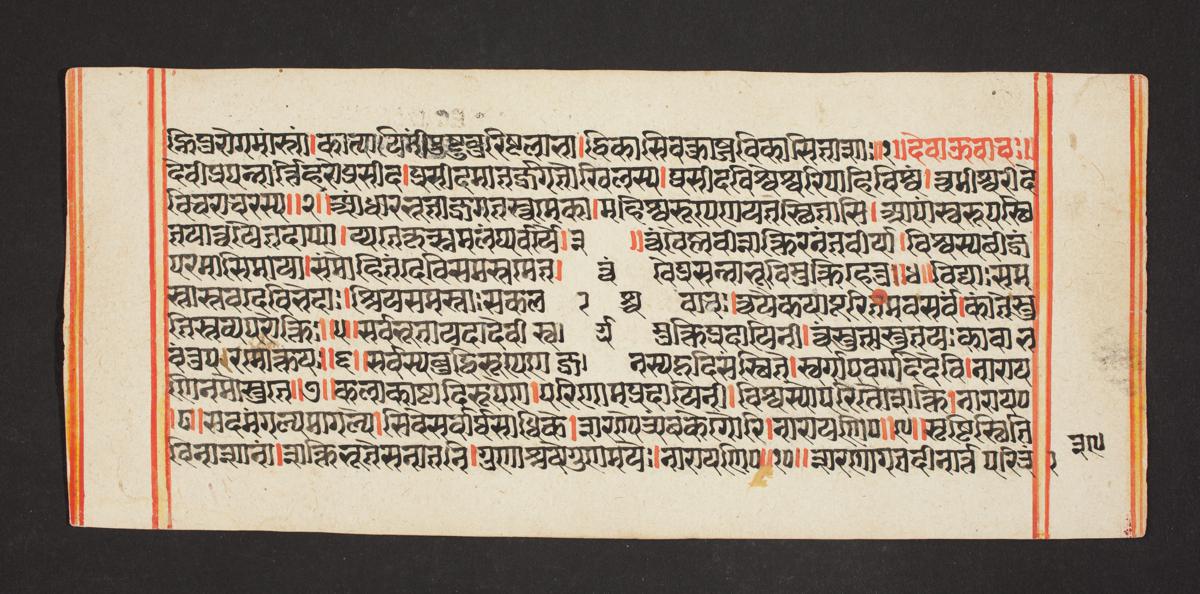 द्विपुरोगमांस्तां।कात्यायिनींतुष्टुवुरिष्टलाभा।द्विकासिवक्त्राब्जविकासिताशाः॥१॥देवाऊवाचः॥
देवीप्रपन्नार्त्तिहरेप्रसीद।प्रसीदमातर्ज्जगतोखिलस्य।प्रसीदविश्वेश्वरिपाहिविश्वं।त्वमीश्वरीदे
विचराचरस्य॥२॥आधारभूताजगतस्त्वमेका।महिश्वरूपेणयतस्थितासि।आपांस्वरूपस्थि
तयात्वयैतदाप्या।य्यतेकृत्स्नमलंघ्यवीर्ये।३॥त्वंवैष्णवीशक्तिरनंतवीर्या।विश्वस्यबीजं
परमासिमाया।संमोहितंदेविसमस्तमेत। त्वं वैप्रसन्नाभूविमुक्तिहेतु॥४॥विद्याःसम
स्तास्तवदेविभेदाः।श्रियःसमस्ताःसकल
तिस्तव्यपरोक्तिः॥५॥सर्वभूतायदादेवी स्व। र्ग मुक्तिप्रदायिनी।त्वंस्तुतास्तुतयेःकावा भ
वंतुपरमोक्तयः॥६॥सर्वस्यबुद्धिरूपेण ज। नस्यहृदिसंस्थिते।स्वर्गापवर्गदेदेवि।नाराय
णिनमोस्तुते॥७॥कलाकाष्टादिरूपेण।परिणामप्रदायिनी।विश्वस्योपरितोशक्ते।नारायण
॥८॥सदमंगल्यमांगल्ये।सिवेसर्वार्थसाधिके।शरण्येत्र्यंबकेगौरि।नारायणिण॥९॥सृष्टिस्थिति
विनाशानां।शक्तिभूतेसनातनि।गुणाश्रयेगुणमयेः।नारायणिण॥१०॥शरणागतदीनार्त्त परित्रा
३९